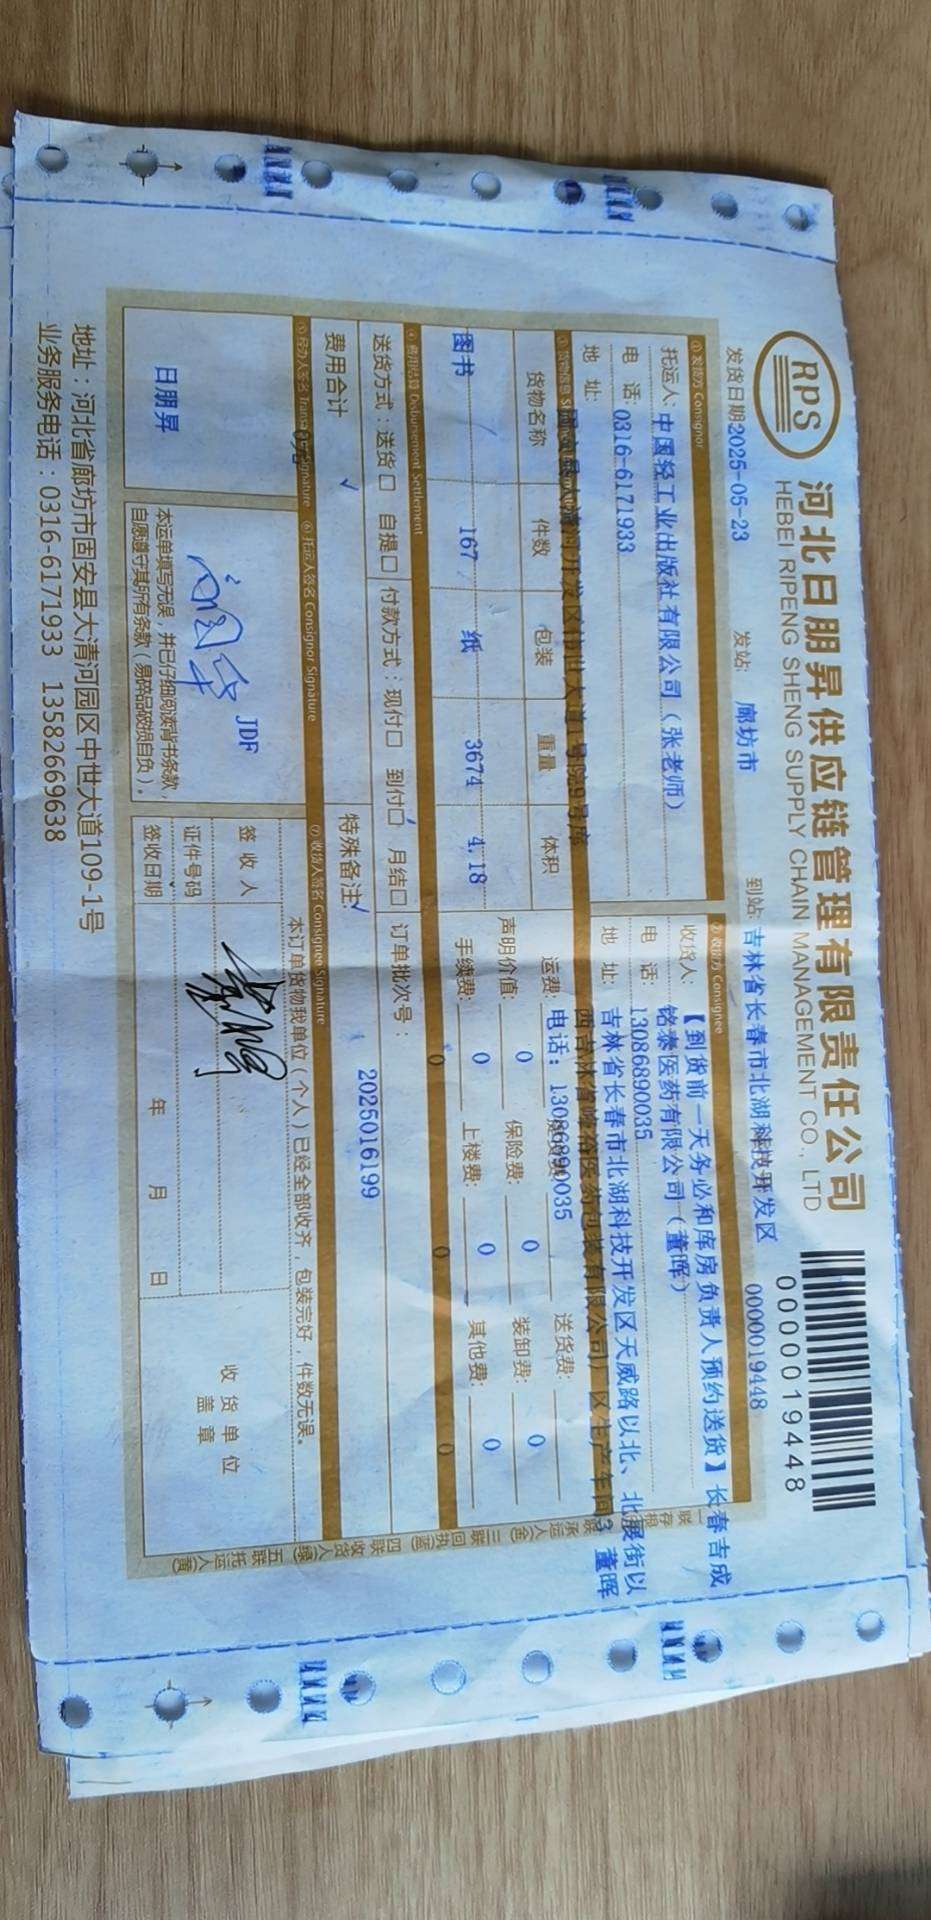 RPS
河北日朋昇供应链管理有限责任公司
HEBEI RIPENG SHENG SUPPLY CHAIN MANAGEMENT CO., LTD
0000019448
发货日期2025-05-23 发站: 廊坊市 到站: 吉林省长春市北湖科技开发区 0000019448
①发货方 Consignor
托运人: 中国轻工业出版社有限公司（张老师）
电 话: 0316-6171933
地 址:
②收货方 Consignee
收货人: 【到货前一天务必和库房负责人预约送货】长春吉成
铭泰医药有限公司（董晖）
电 话: 13086890035
地 址: 吉林省长春市北湖科技开发区天威路以北、北展街以
董晖
电话: 13086890035
货物名称 件数 包装 重量 体积
图书 167 纸 3674 4.18
运费: 送货费:
声明价值: 0 保险费: 0 装卸费: 0
手续费: 0 上楼费: 0 其他费: 0
④费用结算 Disbursement Settlement
0 0 0
送货方式：送货□ 自提□ 付款方式：现付□ 到付□ 月结□ 订单批次号：
2025016199
费用合计 特殊备注
⑥托运人签名 Consignor Signature
⑦收货人签名 Consignee Signature
日朋昇
JDF
本运单填写无误，并已仔细阅读背书条款，
自愿遵守其所有条款（易碎品破损自负）。
本订单货物我单位（个人）已经全部收齐，包装完好，件数无误。
签 收 人
证件号码
签收日期 年 月 日
收货单位
盖 章
地址：河北省廊坊市固安县大清河园区中世大道109-1号
业务服务电话：0316-6171933 13582669638